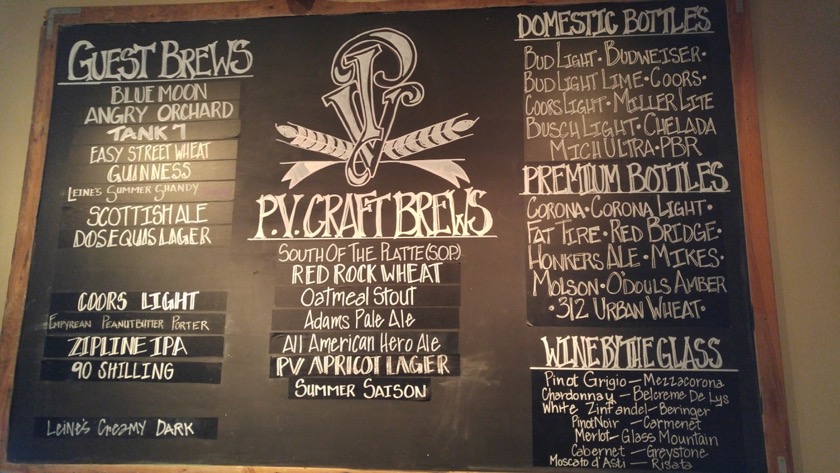 GUEST BREWS
BLUE MOON
ANGRY ORCHARD
TANK 7
EASY STREET WHEAT
GUINNESS
LEINE'S SUMMER SHANDY
SCOTTISH ALE
DOS EQUIS LAGER
COORS LIGHT
EMPYREAN PEANUTBUTTER PORTER
ZIPLINE IPA
90 SHILLING
LEINE'S CREAMY DARK
PV
P.V. CRAFT BREWS
SOUTH OF THE PLATTE (SOP)
RED ROCK WHEAT
Oatmeal Stout
Adams Pale Ale
All American Hero Ale
PV APRICOT LAGER
SUMMER SAISON
DOMESTIC BOTTLES
BUD LIGHT • BUDWEISER •
BUD LIGHT LIME • COORS •
COORS LIGHT • MILLER LITE
BUSCH LIGHT • CHELADA
MICH ULTRA • PBR
PREMIUM BOTTLES
CORONA • CORONA LIGHT •
FAT TIRE • RED BRIDGE •
HONKERS ALE • MIKES •
MOLSON • O'DOULS AMBER
• 312 URBAN WHEAT •
WINE BY THE GLASS
Pinot Grigio – Mezzacorona
Chardonnay – Belcreme De Lys
White Zinfandel – Beringer
Pinot Noir – Carmenet
Merlot – Glass Mountain
Cabernet – Greystone
Moscato d'Asti – Risata